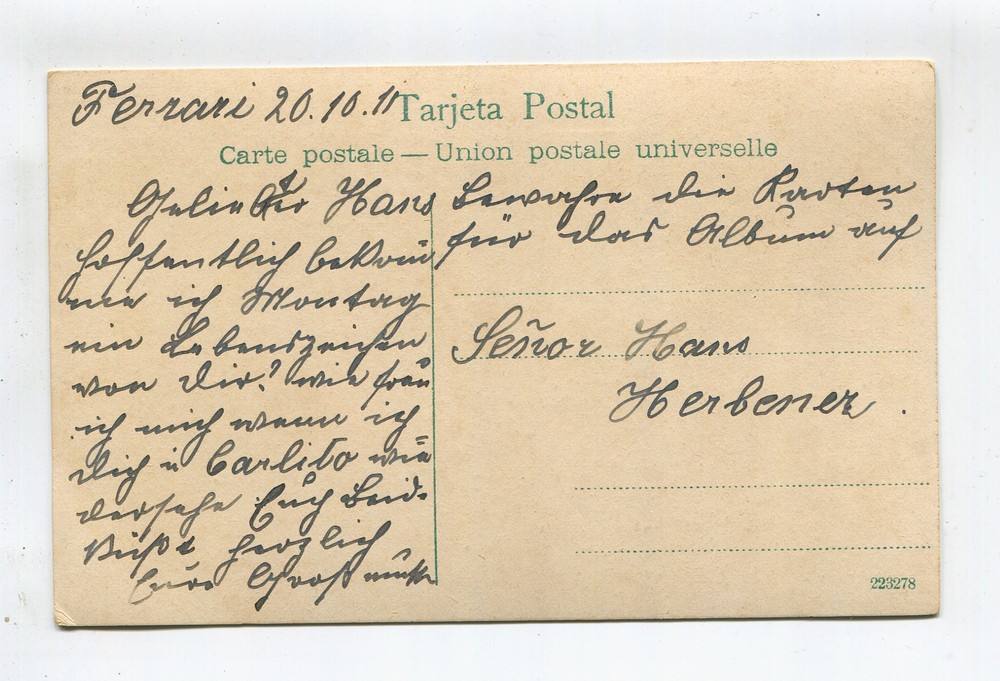 Ferrari 20.10.11
Tarjeta Postal
Carte postale — Union postale universelle
Geliebter Hans
hoffentlich bekom̄
me ich Montag
ein Lebenszeichen
von Dir! wie freu
ich mich wenn ich
Dich u Carlito wie=
dersehe Euch Beid.
küßt herzlich
Eure Großmutter
bewahre die Karten
für das Album auf
Señor Hans
Herbener.
223278